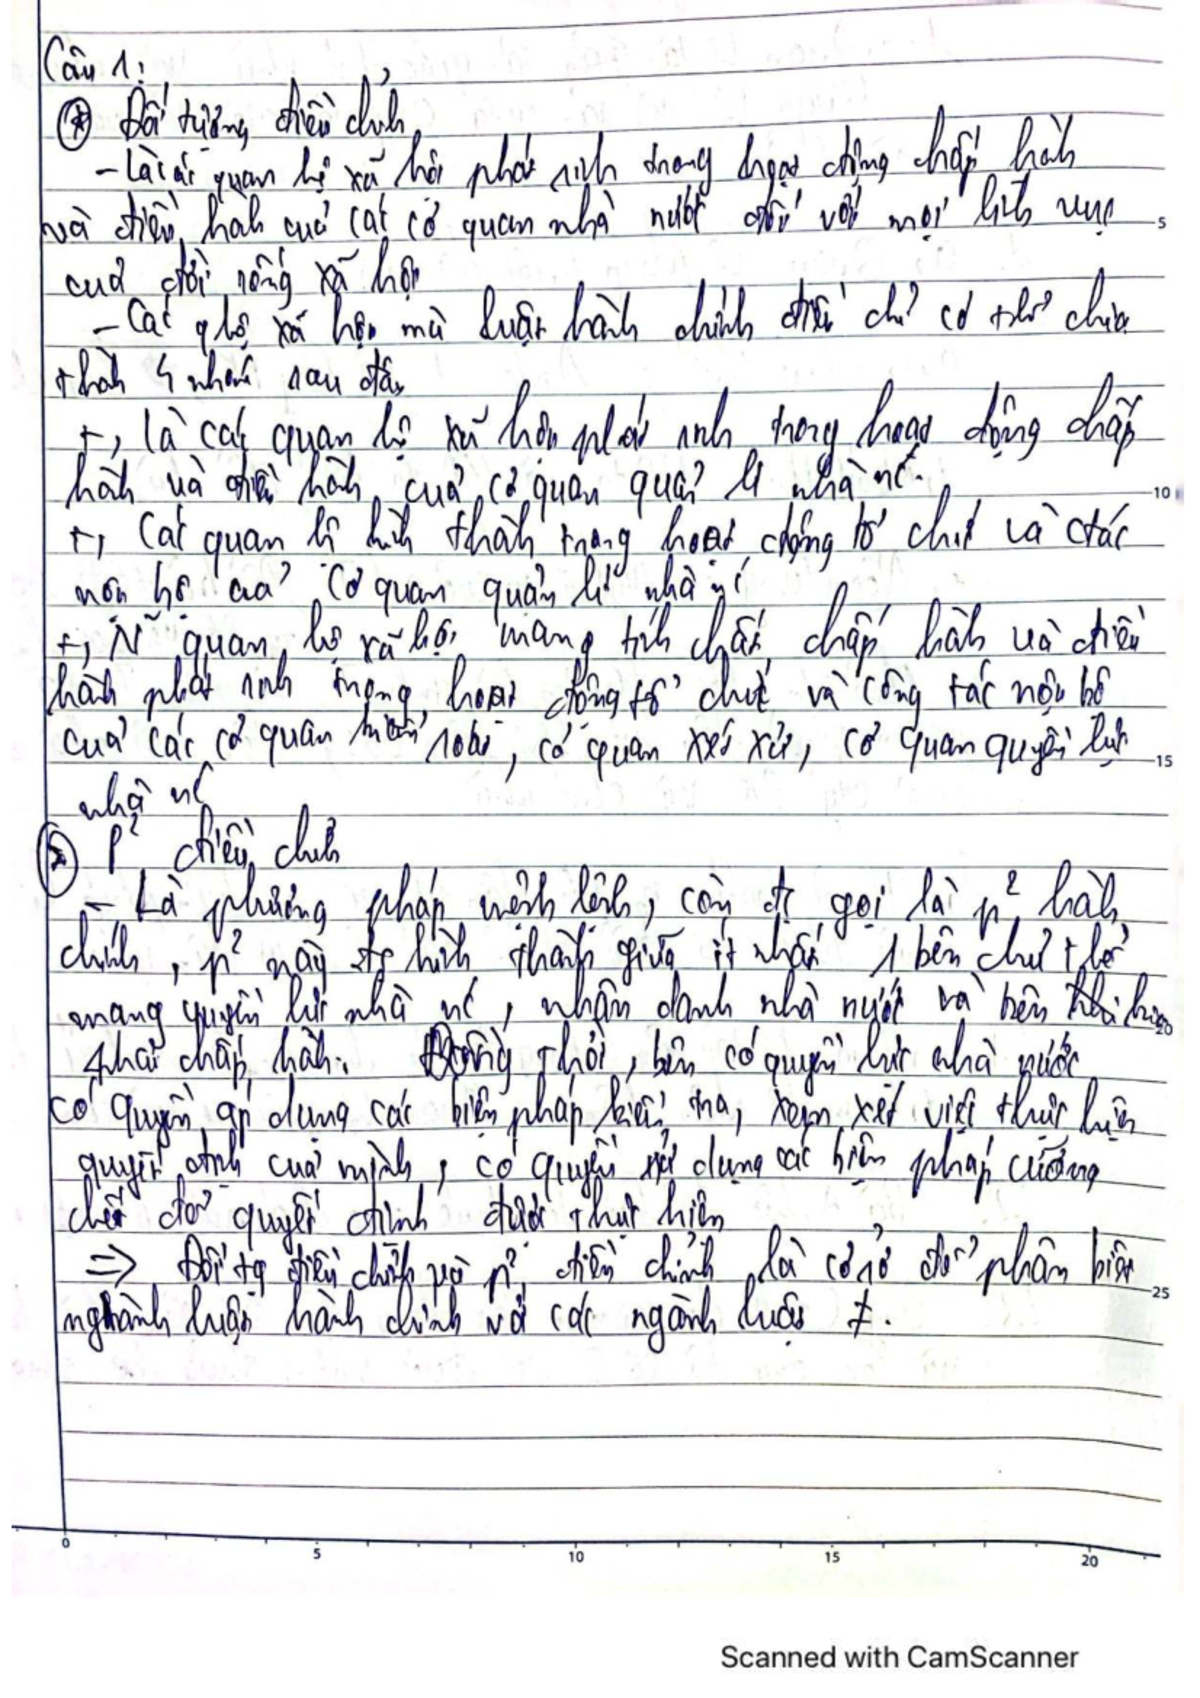 Câu 1:
* Đối tượng điều chỉnh
- Là các quan hệ xã hội phát sinh trong hoạt động chấp hành
và điều hành của các cơ quan nhà nước đối với mọi lĩnh vực
của đời sống xã hội
- Các q hệ xã hội mà luật hành chính điều chỉ có thể chia
thành 4 nhóm sau đây
+, Là các quan hệ xã hội phát sinh trong hoạt động chấp
hành và điều hành của cơ quan quản lí nhà nc.
+, Các quan hệ hình thành trong hoạt động tổ chức và ctác
nội bộ của cơ quan quản lí nhà nc
+, N~ quan hệ xã hội mang tính chất chấp hành và điều
hành phát sinh trong hoạt động tổ chức và công tác nội bộ
của các cơ quan kiểm soát, cơ quan xét xử, cơ quan quyền lực
nhà nc
* P² điều chỉnh
- Là phương pháp mệnh lệnh, còn đc gọi là p² hành
chính, p² này đc hình thành giữa ít nhất 1 bên chủ thể
mang quyền lực nhà nc, nhân danh nhà nước và bên
phải chấp hành. Đồng thời, bên có quyền lực nhà nước
có quyền áp dụng các biện pháp kiểm tra, xem xét việc thực hiện
quyết định của mình, có quyền sử dụng các biện pháp cưỡng
chế để quyết định được thực hiện
=> Đối tg điều chỉnh và p² điều chỉnh là cơ sở để phân biệt
nghành luật hành chính với các ngành luật ≠.
0 5 10 15 20
5
10
15
20
25
Scanned with CamScanner